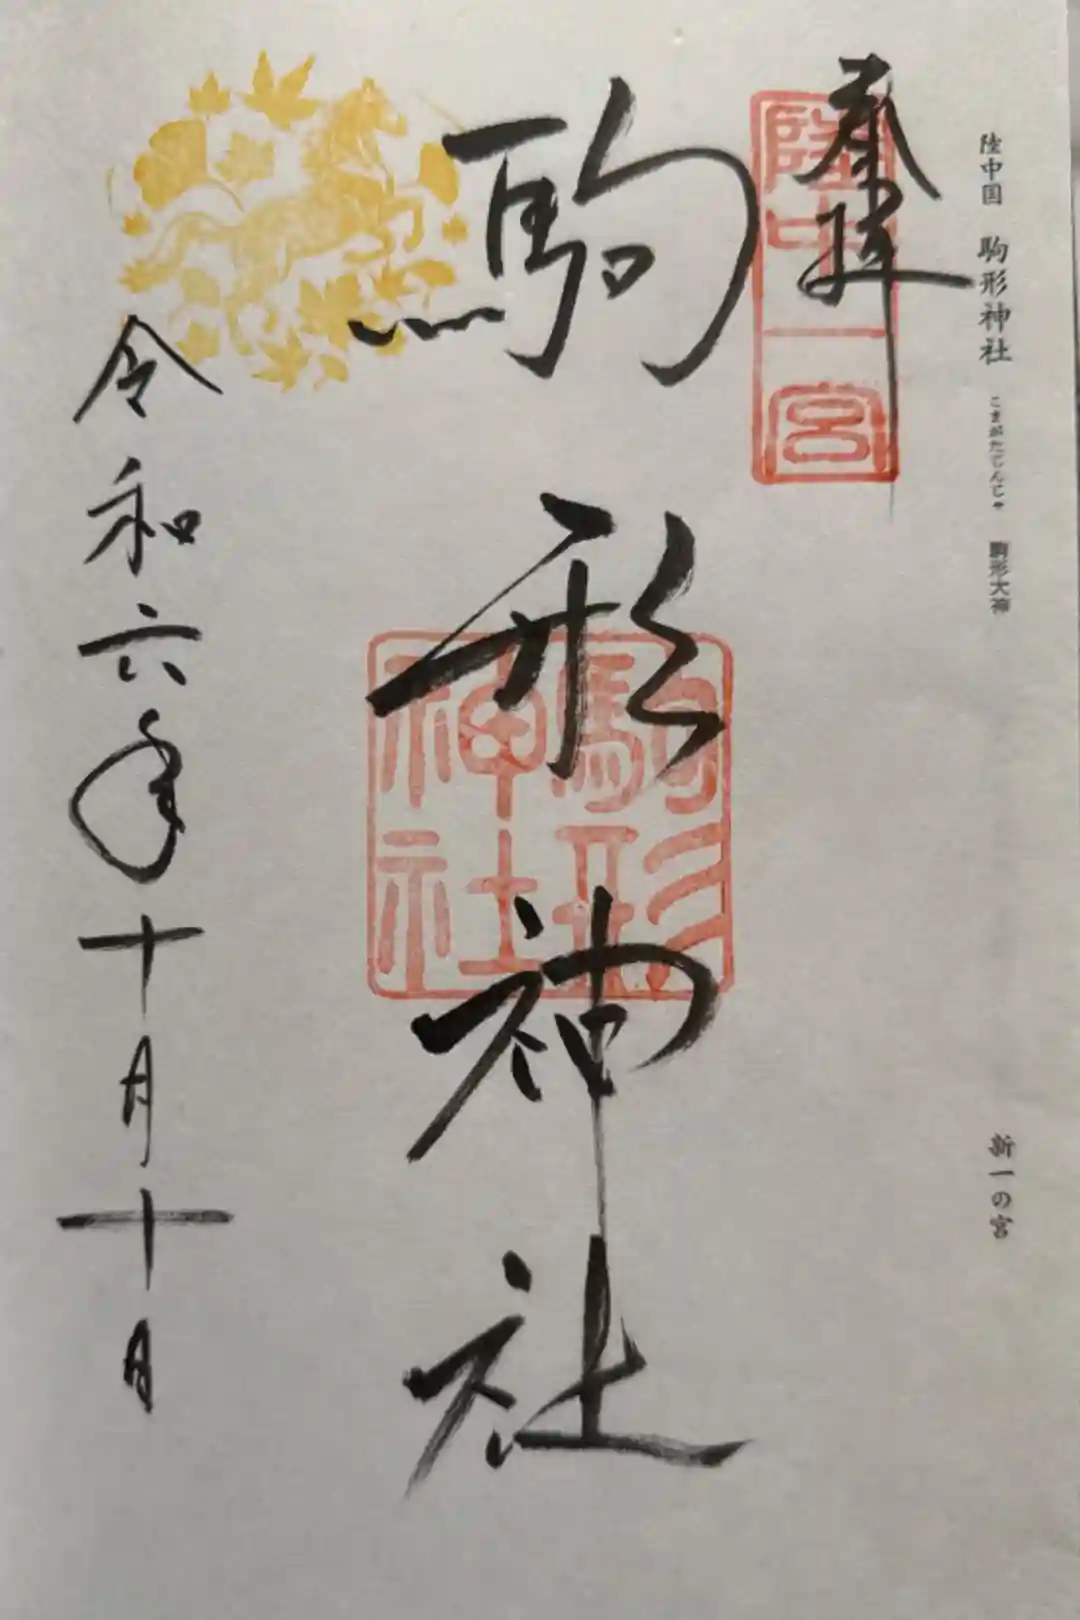 陸中国 駒形神社 こまがたじんじゃ 駒形大神
新一の宮
奉拝
陸中一宮
駒形神社
駒形
神社
令和六年十月十日